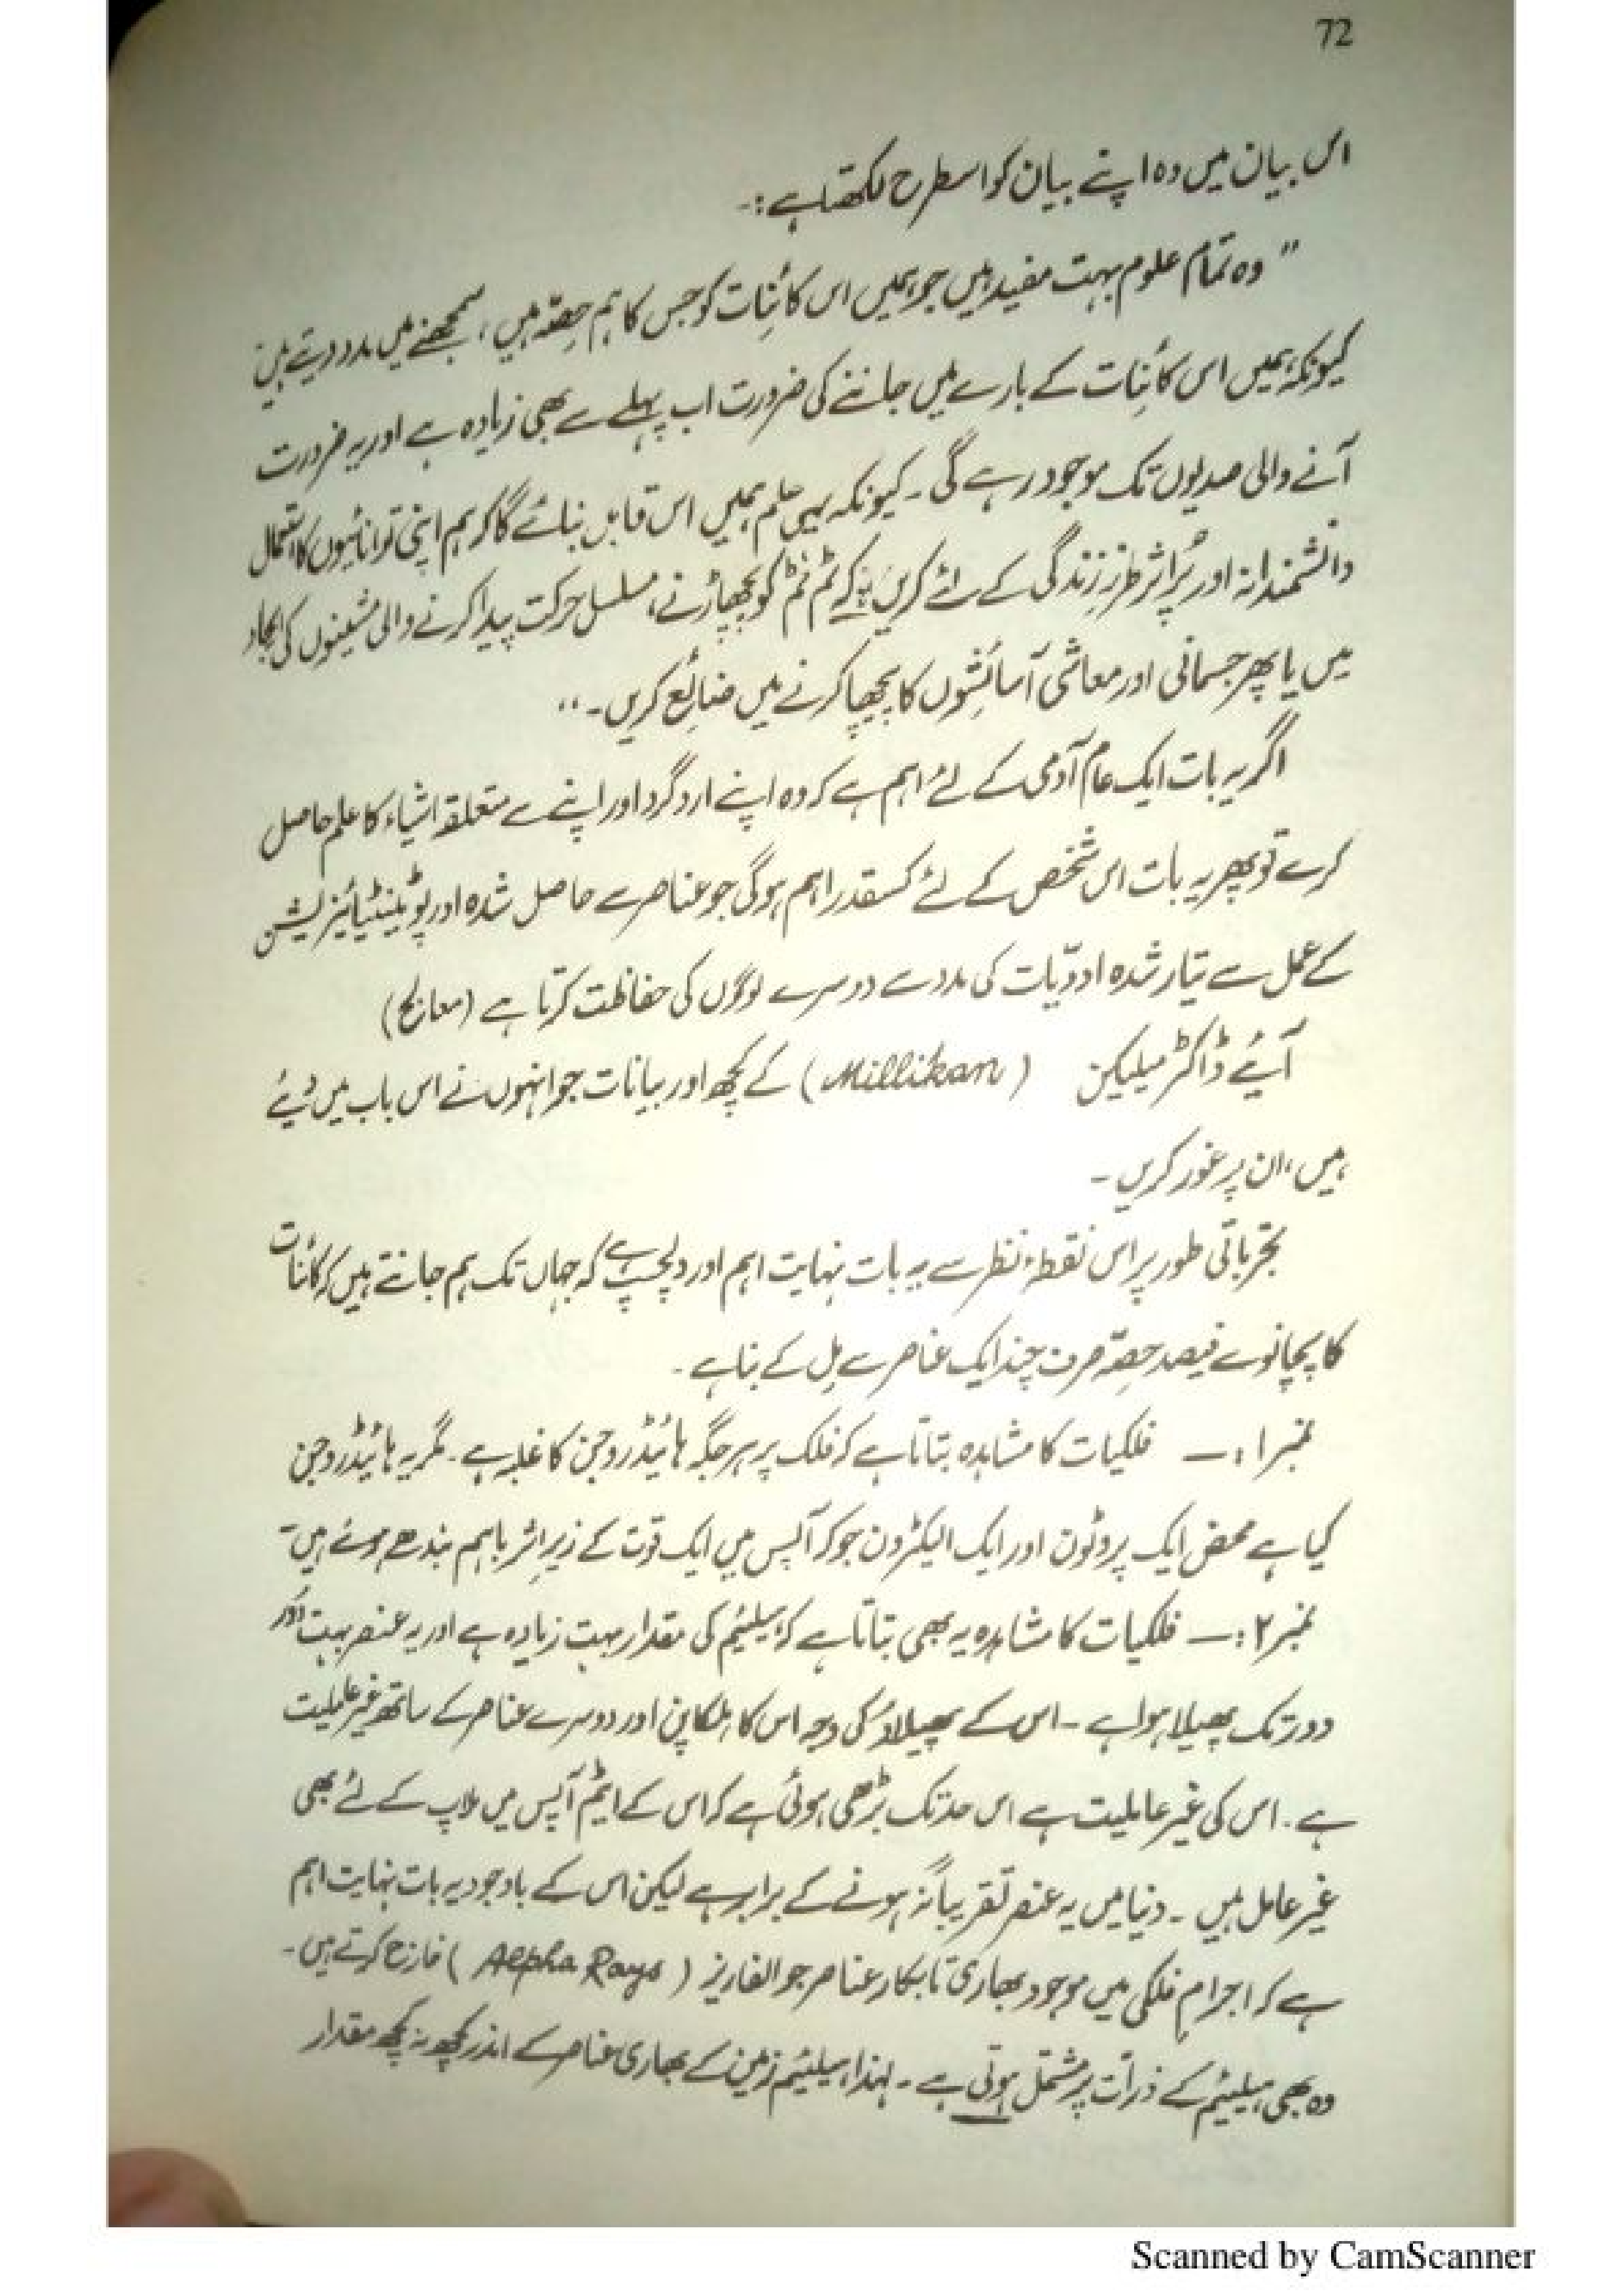 72
اس بیان میں وہ اپنے بیان کو اسطرح لکھتا ہے :۔
" وہ تمام علوم بہت مفید ہیں جو ہمیں اس کائنات کو جس کا ہم حصّہ ہیں ، سمجھنے میں مدد دیتے ہیں
کیونکہ ہمیں اس کائنات کے بارے میں جاننے کی ضرورت اب پہلے سے بھی زیادہ ہے اور یہ ضرورت
آنے والی صدیوں تک موجود رہے گی ۔ کیونکہ یہی علم ہمیں اس قابل بنائے گا کہ ہم اپنی توانائیوں کا استعمال
دانشمندانہ اور پُر اثر طرزِ زندگی کے لئے کریں نہ کہ ٹم ٹم کو پچھاڑنے، مسلسل حرکت پیدا کرنے والی مشینوں کی ایجاد
میں یا پھر جسمانی اور معاشی آسائشوں کا پیچھا کرنے میں ضائع کریں ۔ "
اگر یہ بات ایک عام آدمی کے لئے اہم ہے کہ وہ اپنے اردگرد اور اپنے سے متعلقہ اشیاء کا علم حاصل
کرے تو پھر یہ بات اس شخص کے لئے کسقدر اہم ہوگی جو عناصر سے حاصل شدہ اور پوٹینٹیائیزیشن
کے عمل سے تیار شدہ ادویّات کی مدد سے دوسرے لوگوں کی حفاظت کرتا ہے (معالج)
آیئے ڈاکٹر میلیکن (Millikan) کے کچھ اور بیانات جو انہوں نے اس باب میں دیئے
ہیں، ان پر غور کریں ۔
تجرباتی طور پر اس نقطۂ نظر سے یہ بات نہایت اہم اور دلچسپ ہے کہ جہاں تک ہم جانتے ہیں کہ کائنات
کا پچانوے فیصد حصّہ صرف چند ایک عناصر سے مل کے بنا ہے ۔
نمبر ۱ :۔ فلکیات کا مشاہدہ بتاتا ہے کہ فلک پر ہر جگہ ہائیڈروجن کا غلبہ ہے ۔ مگر یہ ہائیڈروجن
کیا ہے محض ایک پروٹون اور ایک الیکٹرون جو کہ آپس میں ایک قوت کے زیرِ اثر باہم بندھے ہوئے ہیں ۔
نمبر ۲ :۔ فلکیات کا مشاہدہ یہ بھی بتاتا ہے کہ ہیلیئم کی مقدار بہت زیادہ ہے اور یہ عنصر بہت دور
دور تک پھیلا ہوا ہے ۔ اس کے پھیلاؤ کی وجہ اس کا ہلکا پن اور دوسرے عناصر کے ساتھ غیر عاملیت
ہے ۔ اس کی غیر عاملیت ہے اس حد تک بڑھی ہوئی ہے کہ اس کے ایٹم آپس میں ملاپ کے لئے بھی
غیر عامل ہیں ۔ دنیا میں یہ عنصر تقریباً نہ ہونے کے برابر ہے لیکن اس کے باوجود یہ بات نہایت اہم
ہے کہ اجرامِ فلکی میں موجود بھاری تابکار عناصر جو الفا ریز (Alpha Rays) خارج کرتے ہیں ۔
وہ بھی ہیلیئم کے ذرات پر مشتمل ہوتی ہے ۔ لہٰذا ہیلیئم زمین کے بھاری عناصر کے اندر کچھ نہ کچھ مقدار
Scanned by CamScanner